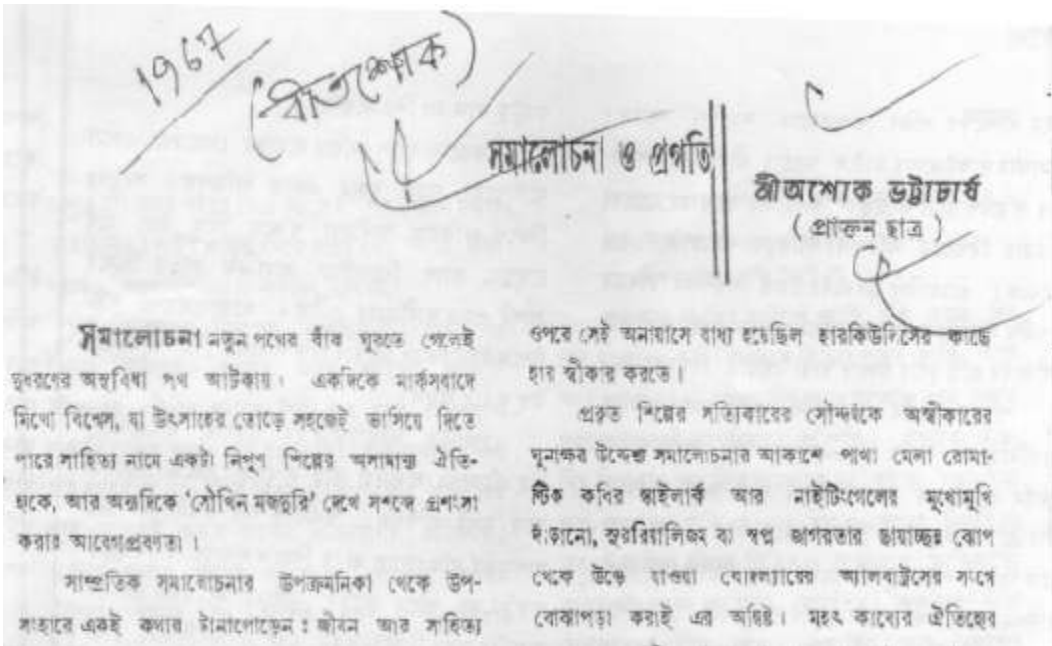 1967
(বীতশোক)
সমালোচনা ও প্রগতি
শ্রীঅশোক ভট্টাচার্য
( প্রাক্তন ছাত্র )
সমালোচনা নতুন পথের বাঁক ঘুরতে গেলেই
দুধরণের অসুবিধা পথ আটকায়। একদিকে মার্কসবাদে
মিথ্যে বিশ্বেস, যা উৎসাহের তোড়ে সহজেই ভাসিয়ে দিতে
পারে সাহিত্য নামে একটা নিপুণ শিল্পের অসামান্য ঐতি-
হ্যকে, আর অন্যদিকে ‘সৌখিন মজদুরি’ দেখে সশব্দে প্রশংসা
করার আবেগপ্রবণতা।
সাম্প্রতিক সমালোচনার উপক্রমনিকা থেকে উপ-
সংহারে একই কথার টানাপোড়েন : জীবন আর সাহিত্য
ওপরে সেই অনায়াসে বাধ্য হয়েছিল হারকিউলিসের কাছে
হার স্বীকার করতে।
প্রকৃত শিল্পের সত্যিকারের সৌন্দর্যকে অস্বীকারের
ঘুনাক্ষর উদ্দেশ্য সমালোচনার আকাশে পাখা মেলা রোমা-
ন্টিক কবির স্কাইলার্ক আর নাইটিংগেলের মুখোমুখি
দাঁড়ানো, সুররিয়ালিজম বা স্বপ্ন জাগরতার ছায়াচ্ছন্ন ঝোপ
থেকে উড়ে যাওয়া বোদল্যারের অ্যালবাট্রসের সংগে
বোঝাপড়া করাই এর অন্বিষ্ট। মহৎ কাব্যের ঐতিহ্যের